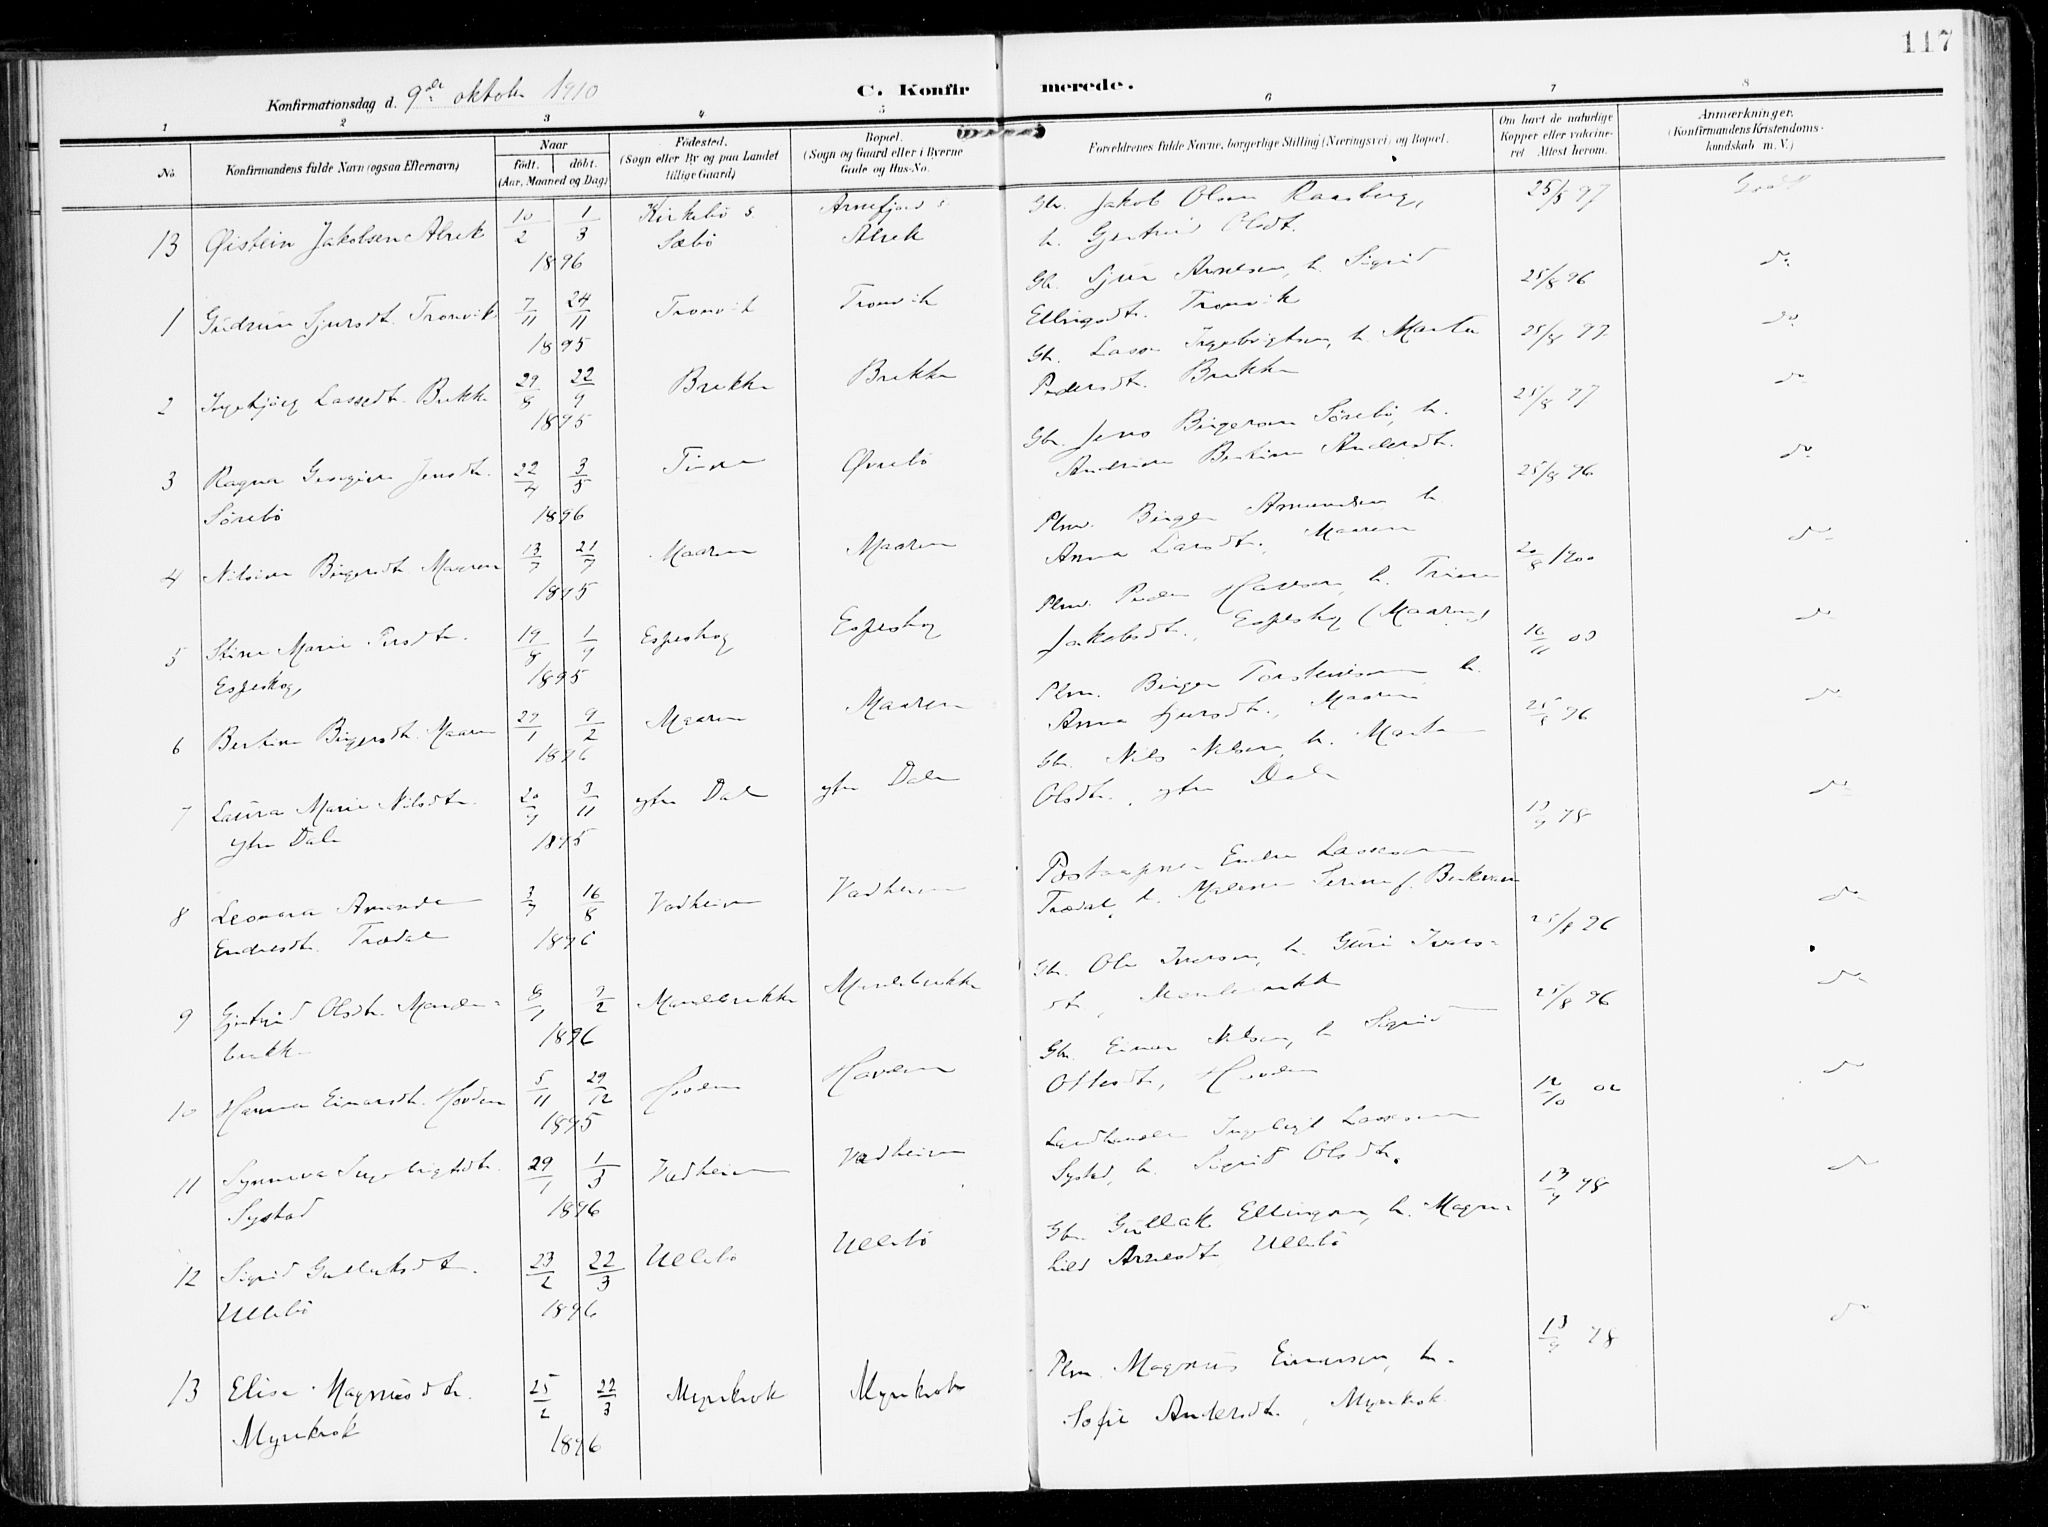 117
Konfirmationsdag d. 9de oktober 1910
C. Konfirmerede.
1 2 3 4 5 6 7 8
No.
Konfirmandens fulde Navn (ogsaa Efternavn)
Naar
födt. döbt.
(Aar, Maaned og Dag)
Födested.
(Sogn eller By og paa Landet
tillige Gaard)
Bopæl.
(Sogn og Gaard eller i Byerne
Gade og Hus-No.
Forældrenes fulde Navne, borgerlige Stilling (Næringsvei) og Bopæl.
Om havt de naturlige
Kopper eller vakcine-
ret. Attest herom.
Anmærkninger.
(Konfirmandens Kristendoms-
kundskab m. V.)
13 Øistein Jakobsen Alrek 10/2 1/3 1896 Kirkebö s. Sæbö Arnefjord s. Alrek
Gbr. Jakob Olsen Raasberg,
h. Gjertrud Olsdt. 25/8 97 Godt
1 Gudrun Sjursdt. Tronvik 7/11 24/11 1895 Tronvik Tronvik
Gbr. Sjur Arnesen, h. Sigrid
Ellingsdt. Tronvik 25/8 96 do
2 Ingebjörg Lassedt. Brekke 29/8 22/9 1895 Brekke Brekke
Gbr. Lasse Ingebrigtsen, h. Marta
Pedersdt. Brekke 25/8 97 do
3 Ragna Jensdt.
Sörebö 22/4 3/5 1896 Øvrebö
Gbr. Jens Birgersen Sörebö, h.
Andrine Bertine Andersdt. 25/8 97 do
4 Nilsine Birgersdt. Maaren 13/7 21/7 1895 Maaren Maaren
Plm. Birger Amundsen h.
Anna Larsdt., Maaren 25/8 96 do
5 Stine Marie Persdt.
Espeskog 19/8 1/9 1895 Espeskog Espeskog
Plm. Peder h.
Jakobsdt., Espeskog (Maaren) 20/8 1900 do
6 Bertine Birgersdt. Maaren 27/1 9/2 1896 Maaren Maaren
Plm. Birger Torsteinsen h.
Anna Sjursdt., Maaren 16/11 03 do
7 Laura Marie Nilsdt.
ytre Dale 20/9 3/11 1895 ytre Dale ytre Dale
Gbr. Nils Nilsen, h. Marta
Olsdt., ytre Dale 25/8 96 do
8 Leonora Amanda
Endresdt. Trædal 3/7 16/8 1896 Vadheim Vadheim
Postaapner Endre Lassesen
Trædal, h. Malene Serine f. Berkvam 13/9 98 do
9 Gjertrud Olsdt. Mande-
brekke 8/1 9/2 1896 Mandebrekke Mandebrekke
Gbr. Ole Iversen, h. Guri Ivers-
dt., Mandebrekke 25/8 96 do
10 Hanna Einarsdt. Hovden 5/11 29/12 1895 Hovden Hovden
Gbr. Einar Nilsen, h. Sigrid
Ottesdt, Hovden 25/8 96 do
11 Synneva Ingebrigtsdt.
Systad 29/1 1/3 1896 Vadheim Vadheim
Landhandler Ingebrigt Lassesen
Systad, h. Sigrid Olsdt. 12/10 02 do
12 Sigrid Gullaksdt.
Ullebö 23/2 22/3 1896 Ullebö Ullebö
Gbr. Gullak Ellingsen, h. Magn-
hild Arnesdt. Ullebö 13/9 98 do
13 Elise Magnusdt.
Myrekrok 25/2 22/3 1896 Myrekrok Myrekrok
Plm. Magnus Einarsen, h.
Sofie Andersdt., Myrekrok 13/9 98 do